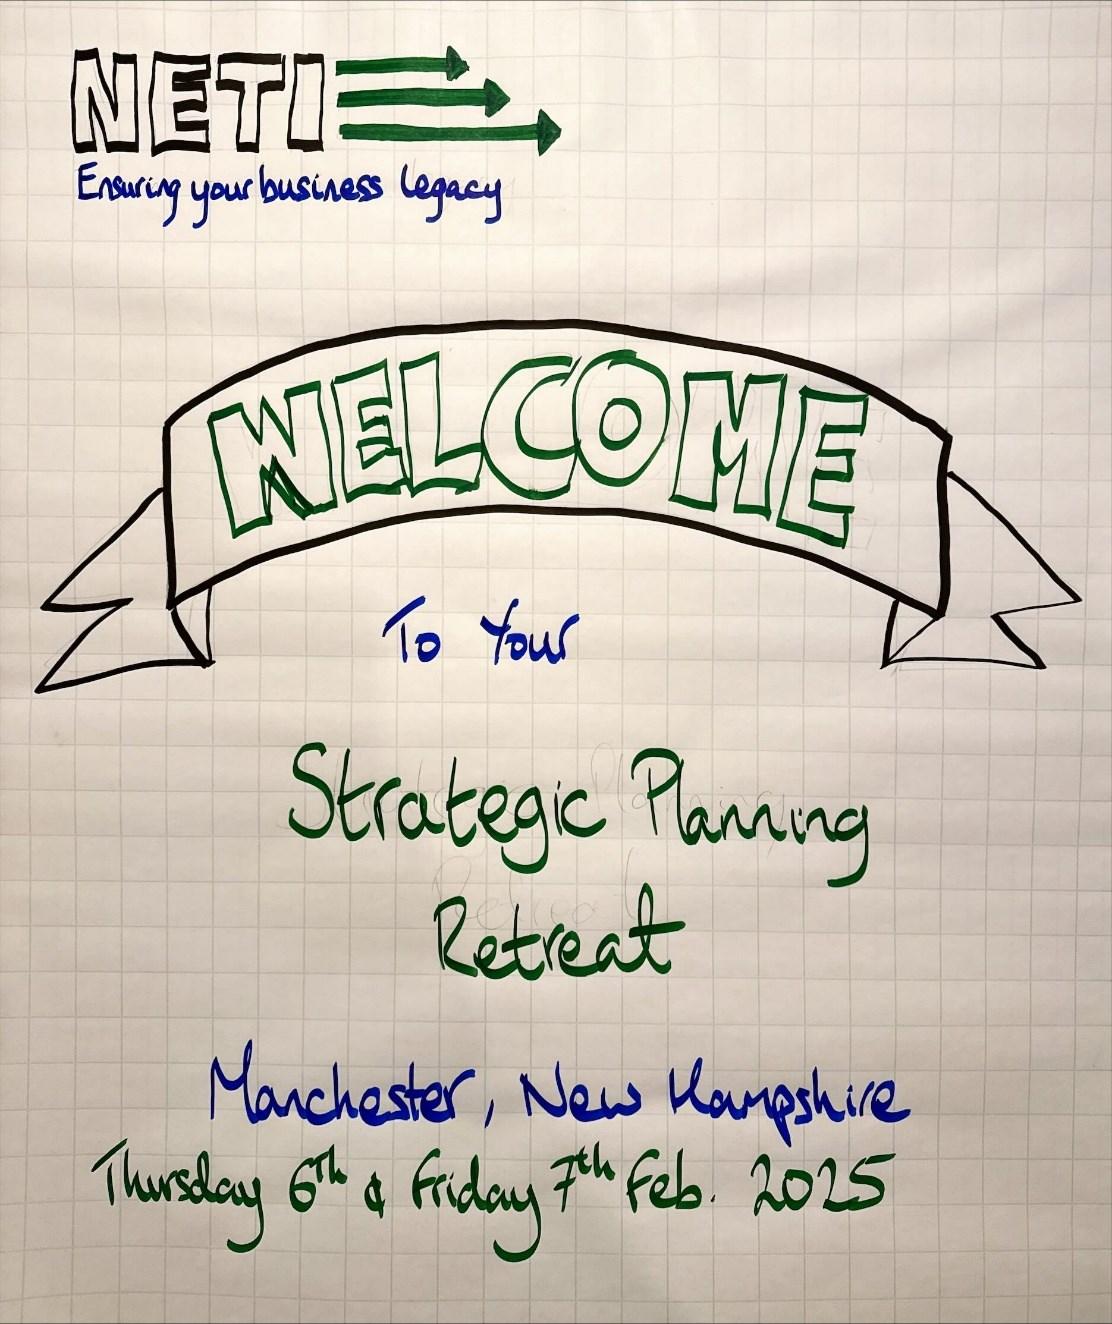 NETI
Ensuring your business legacy
WELCOME
To Your
Strategic Planning
Retreat
Manchester, New Hampshire
Thursday 6th & Friday 7th Feb. 2025